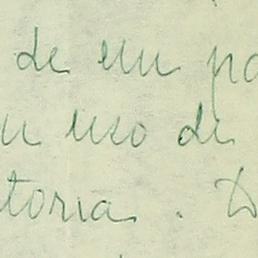 de un pa
un uso de
toria. D